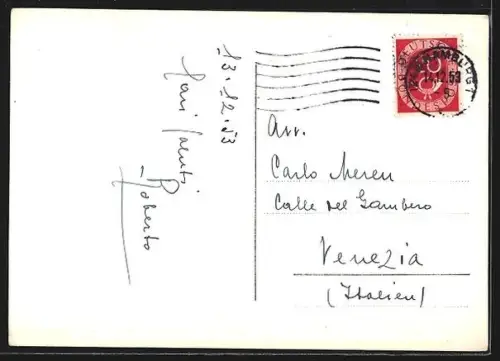 13.12.53
Cari saluti
Roberto
DEUTSCHE
HAMBURG 1
14.12.53
Avv.
Carlo Meren
Calle del Gambero
Venezia
(Italien)